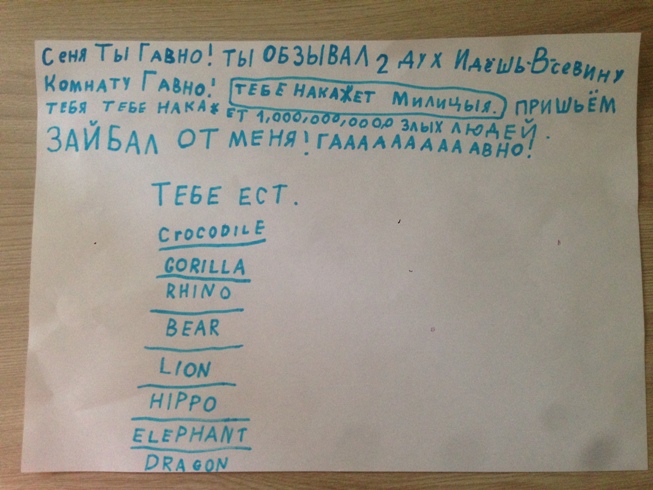 Сеня Ты Гавно! ты обзывал 2 дух Идёшь-Всевину
Комнату Гавно! ТЕБЕ НАКАЖЕТ МИЛИЦЫЯ. ПРИШЬЁМ
ТЕБЯ ТЕБЕ НАКАЖЕТ 1,000,000,0000 ЗЛЫХ ЛЮДЕЙ.
ЗАЙБАЛ ОТ МЕНЯ! ГАААААААААВНО!
ТЕБЕ ЕСТ.
CROCODILE
GORILLA
RHINO
BEAR
LION
HIPPO
ELEPHANT
DRAGON